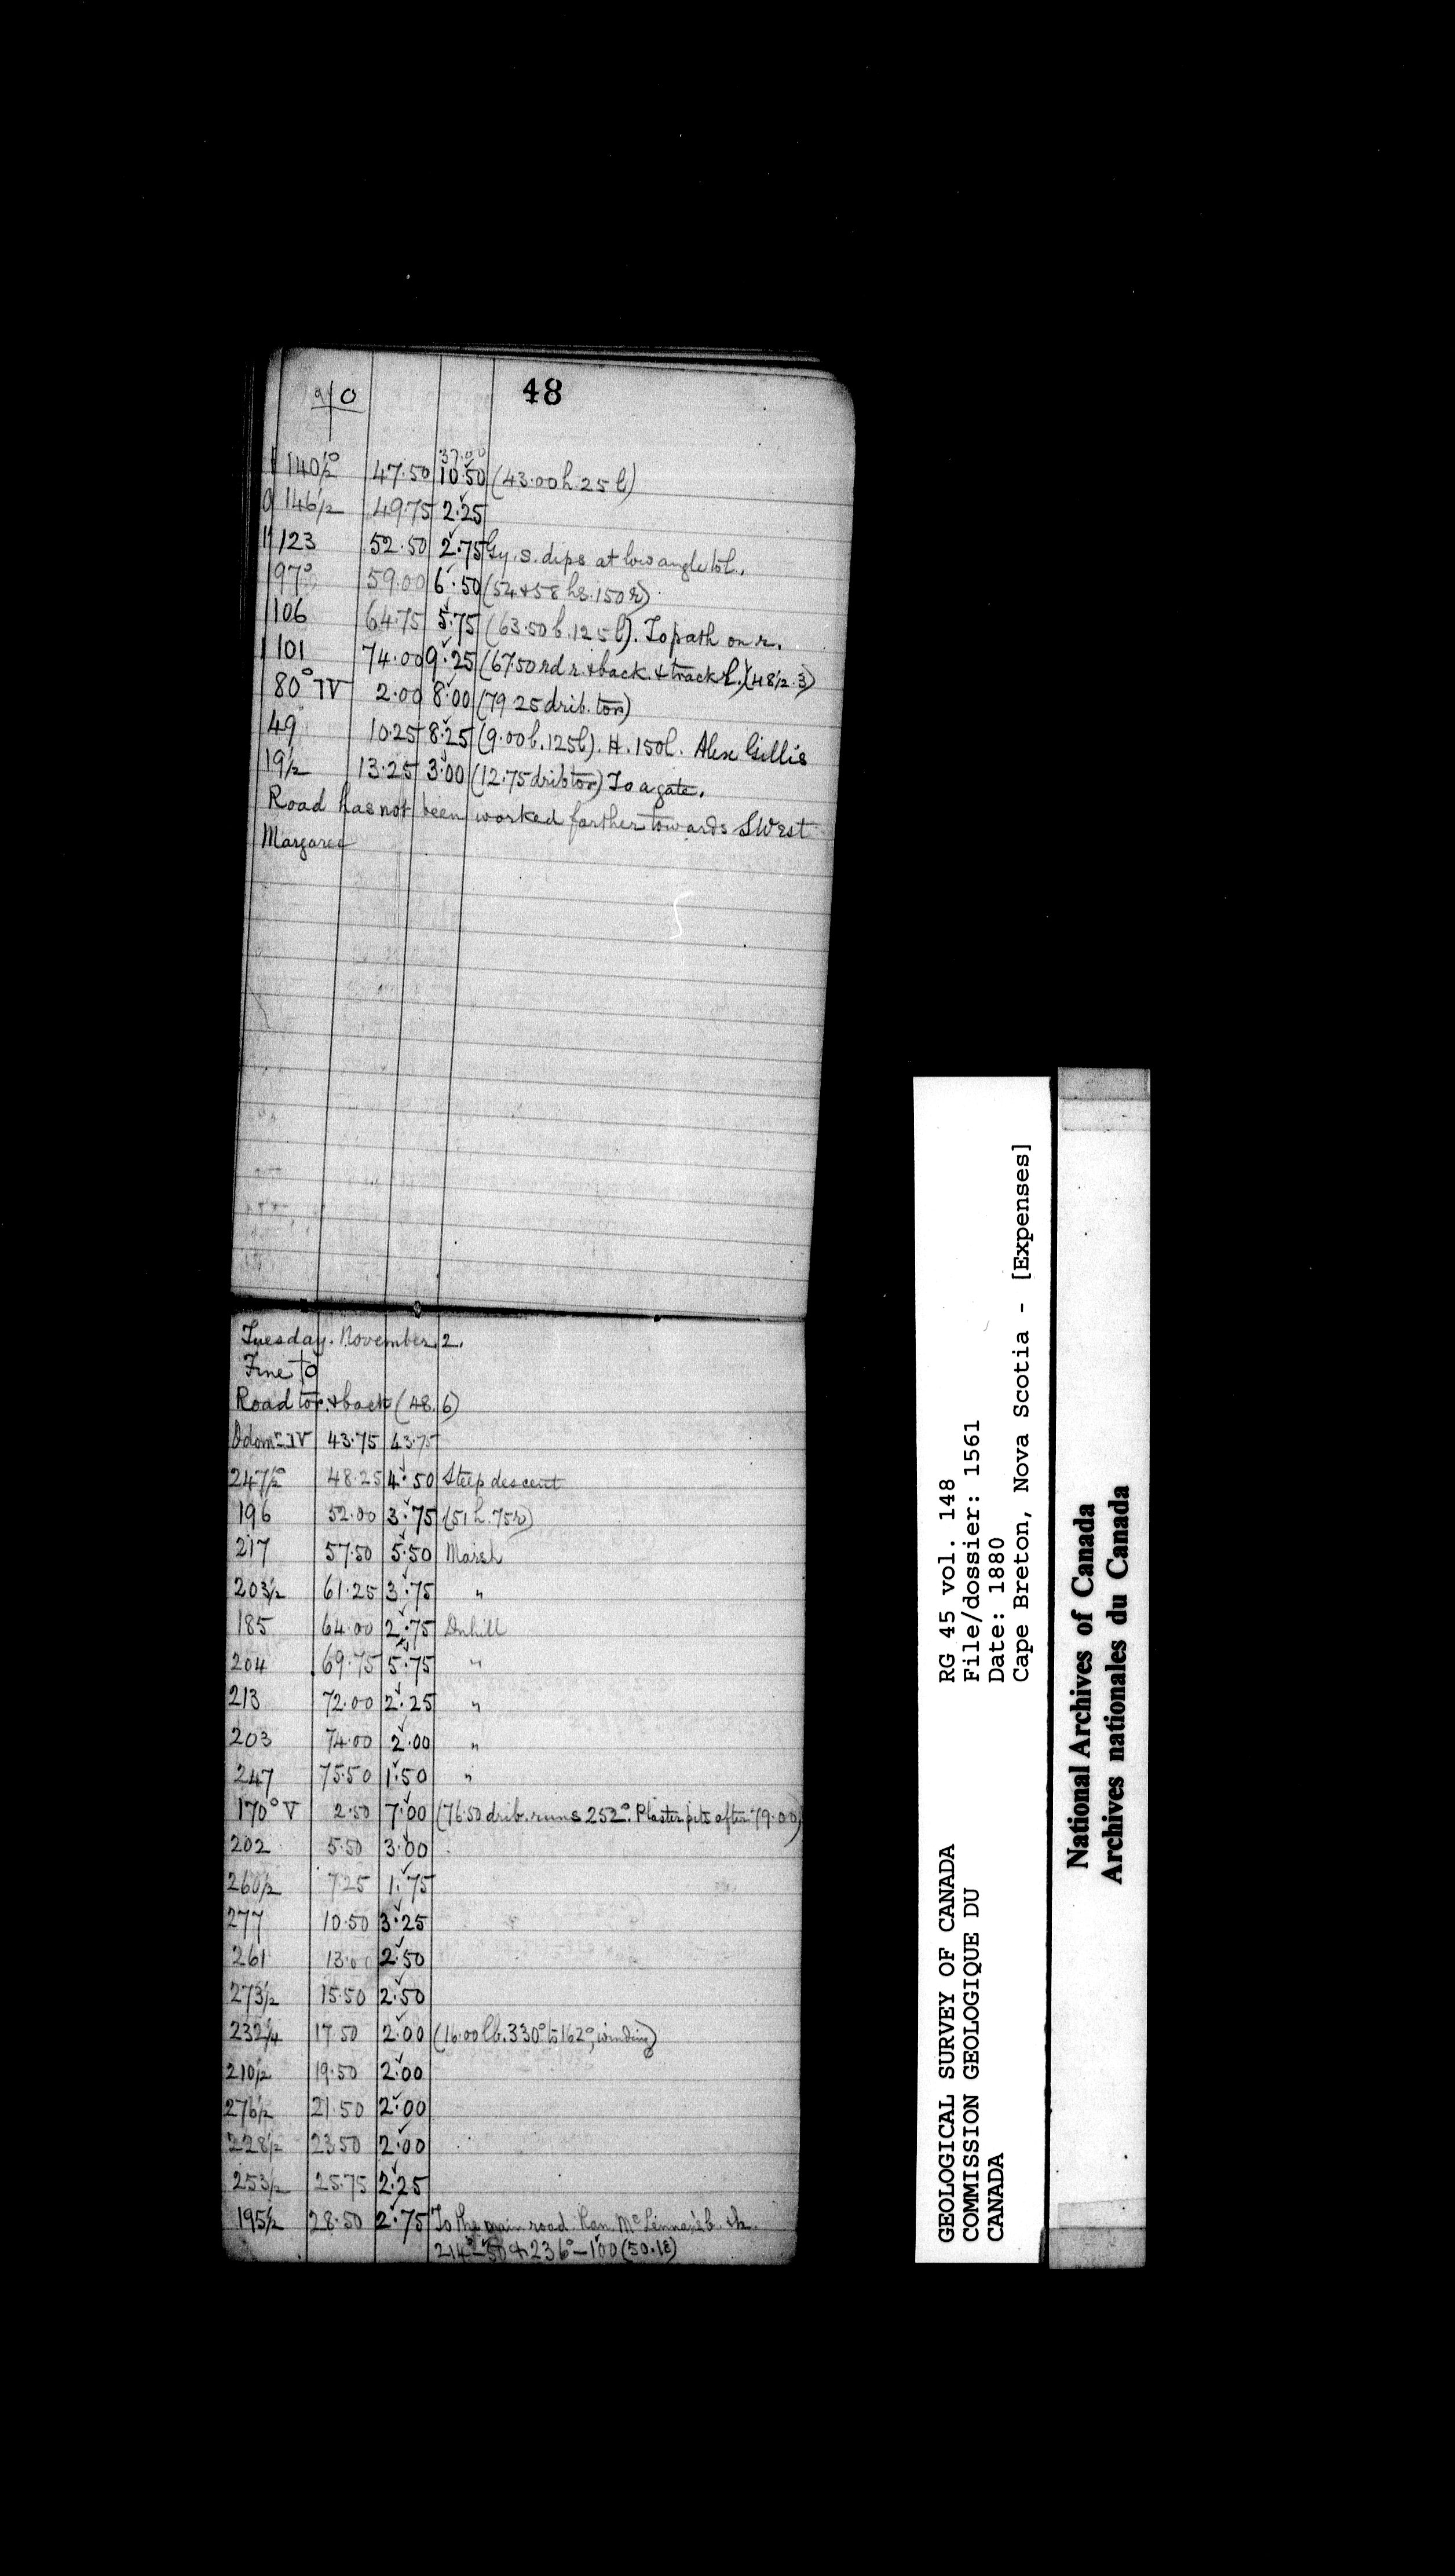 48
37.00
140½° 47.50 10.50 (43.00 h. 25 l)
146½ 49.75 2.25
123 52.50 2.75 Gy. s. dips at low angle to l.
97° 59.00 6.50 (54 & 58 hs. 150 r)
106 64.75 5.75 (63.50 b. 125 l). To path on r.
101 74.00 9.25 (67.50 rd r. & back. & track l.) (48½.3)
80° IV 2.00 8.00 (79 25 drib. to r)
49 10.25 8.25 (9.00 b. 125 l). H. 150 l. Alex Gillis
19½ 13.25 3.00 (12.75 drib to r) To a gate.
Road has not been worked farther towards SWest
Margaree
Tuesday. November. 2.
Fine to
Road to r. & back (48.6)
Odomr IV 43.75 43.75
247½° 48.25 4.50 Steep descent
196 52.00 3.75 (51 h. 75 r)
217 57.50 5.50 Marsh
203½ 61.25 3.75 "
185 64.00 2.75 Dnhill
204 69.75 5.75 "
213 72.00 2.25 "
203 74.00 2.00 "
247 75.50 1.50 "
170° V 2.50 7.00 (76.50 drib. runs 252°. Plaster pits after 79.00)
202 5.50 3.00
260½ 7.25 1.75
277 10.50 3.25
261 13.00 2.50
273½ 15.50 2.50
232¼ 17.50 2.00 (16.00 lb. 330° to 162°, winding)
210½ 19.50 2.00
276½ 21.50 2.00
228½ 23.50 2.00
253½ 25.75 2.25
195½ 28.50 2.75 To the main road. McLennan's b.
214°-50 & 236°-100 (50.18)
GEOLOGICAL SURVEY OF CANADA RG 45 vol. 148
COMMISSION GEOLOGIQUE DU File/dossier: 1561
CANADA Date: 1880
Cape Breton, Nova Scotia - [Expenses]
National Archives of Canada
Archives nationales du Canada